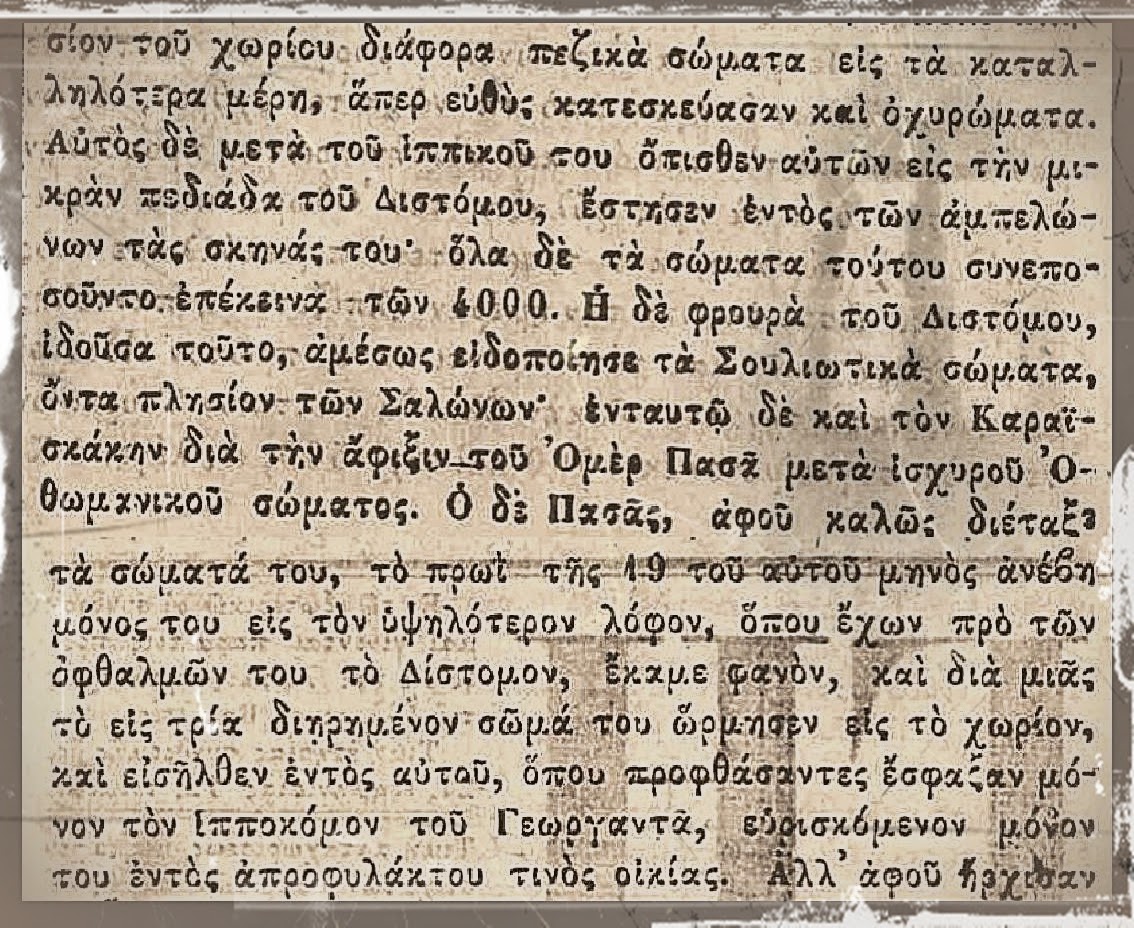 σίον τοῦ χωρίου διάφορα πεζικὰ σώματα εἰς τὰ καταλ-
ληλότερα μέρη, ἅπερ εὐθὺς κατεσκεύασαν καὶ ὀχυρώματα.
Αὐτὸς δὲ μετὰ τοῦ ἱππικοῦ του ὄπισθεν αὐτῶν εἰς τὴν μι-
κρὰν πεδιάδα τοῦ Διστόμου, ἔστησεν ἐντὸς τῶν ἀμπελώ-
νων τὰς σκηνάς του· ὅλα δὲ τὰ σώματα τούτου συνεπο-
σοῦντο ἐπέκεινα τῶν 4000. Ἡ δὲ φρουρὰ τοῦ Διστόμου,
ἰδοῦσα τοῦτο, ἀμέσως εἰδοποίησε τὰ Σουλιωτικὰ σώματα,
ὄντα πλησίον τῶν Σαλώνων· ἐνταυτῷ δὲ καὶ τὸν Καραϊ-
σκάκην διὰ τὴν ἄφιξιν τοῦ Ὀμὲρ Πασᾶ μετὰ ἰσχυροῦ Ὀ-
θωμανικοῦ σώματος. Ὁ δὲ Πασᾶς, ἀφοῦ καλῶς διέταξε
τὰ σώματά του, τὸ πρωῒ τῆς 19 τοῦ αὐτοῦ μηνὸς ἀνέβη
μόνος του εἰς τὸν ὑψηλότερον λόφον, ὅπου ἔχων πρὸ τῶν
ὀφθαλμῶν του τὸ Δίστομον, ἔκαμε φανὸν, καὶ διὰ μιᾶς
τὸ εἰς τρία διῃρημένον σῶμά του ὥρμησεν εἰς τὸ χωρίον,
καὶ εἰσῆλθεν ἐντὸς αὐτοῦ, ὅπου προφθάσαντες ἔσφαξαν μό-
νον τὸν Ἱπποκόμον τοῦ Γεωργαντᾶ, εὑρισκόμενον μόνον
του ἐντὸς ἀπροφυλάκτου τινὸς οἰκίας. Ἀλλ' ἀφοῦ ἤρχισαν